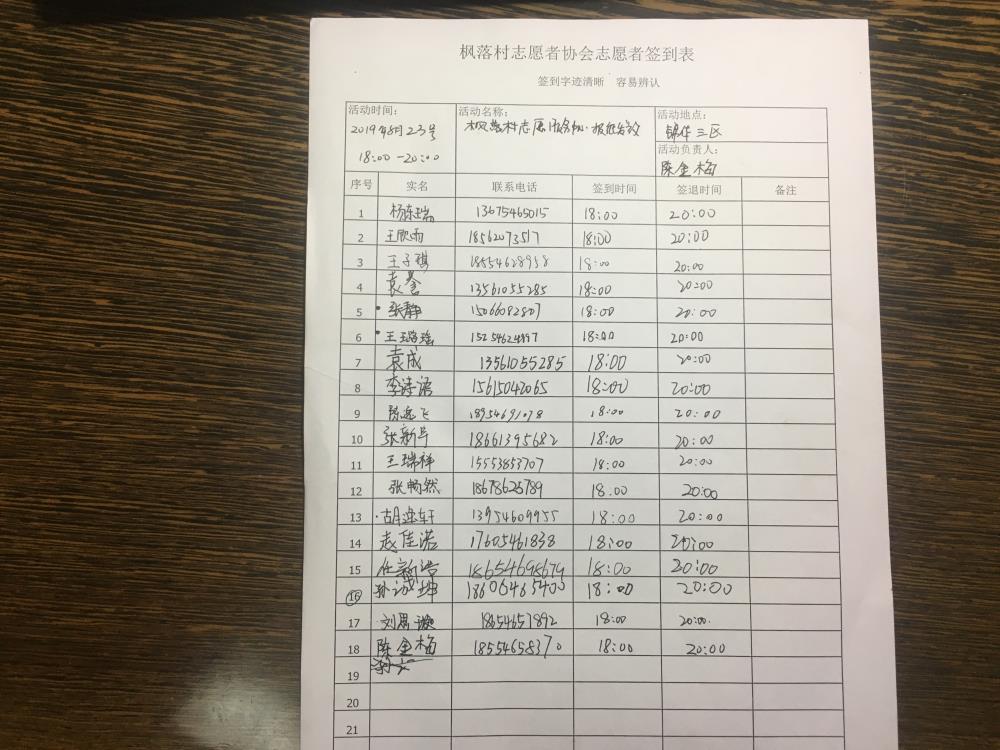 枫落村志愿者协会志愿者签到表
签到字迹清晰 容易辨认
活动时间： 活动名称： 活动地点：
2019年5月23号 枫落村志愿服务 锦华三区
18:00-20:00 活动负责人：
陈金梅
序号 实名 联系电话 签到时间 签退时间 备注
1 杨东瑞 13675465015 18:00 20:00
2 王欣雨 18562073517 18:00 20:00
3 王子琪 18554628958 18:00 20:00
4 袁誉 13561055285 18:00 20:00
5 张静 15066092807 18:00 20:00
6 王璐瑶 18:00 20:00
7 袁成 13561055285 18:00 20:00
8 李诗语 15615042065 18:00 20:00
9 陈逸飞 18954691078 18:00 20:00
10 张新宇 18661395682 18:00 20:00
11 王瑞祥 15553853707 18:00 20:00
12 张畅然 18678625789 18:00 20:00
13 胡逸轩 13954609955 18:00 20:00
14 赵佳诺 17605461838 18:00 20:00
15 任新浩 18654698679 18:00 20:00
16 孙诚坤 18606465400 18:00 20:00
17 刘思璇 18654657892 18:00 20:00
18 陈金梅 18554658370 18:00 20:00
19
20
21